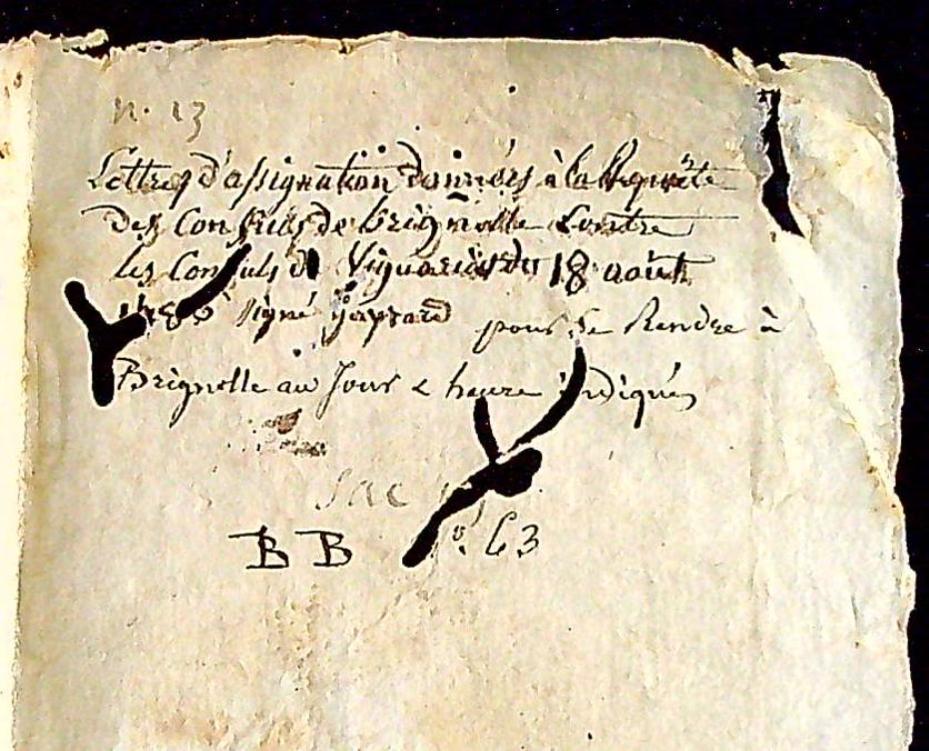 n. 13
Lettres d'assignation données à la Requête
des Consuls de brignolle Contre
les Consuls de Viguerie du 18 août
signé pour se Rendre à
Brignolle au Jour & heure indiqués
Sac
BB 63